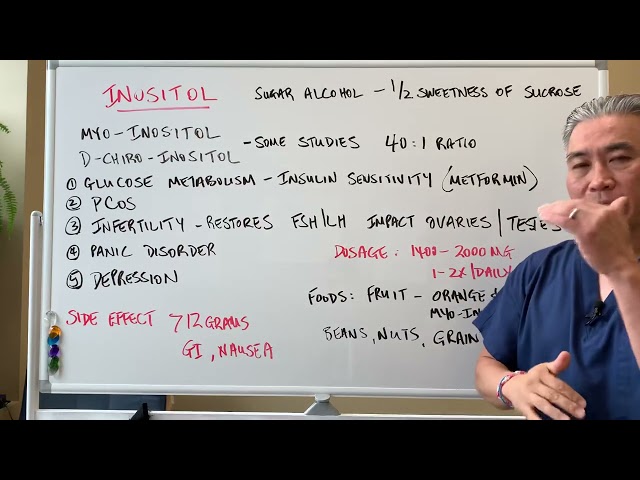 INUSITOL SUGAR ALCOHOL - 1/2 SWEETNESS OF SUCROSE
MYO-INOSITOL
D-CHIRO-INOSITOL - SOME STUDIES 40:1 RATIO
① GLUCOSE METABOLISM - INSULIN SENSITIVITY (METFORMIN)
② PCOS
③ INFERTILITY - RESTORES FSH/LH IMPACT OVARIES/TESTES
④ PANIC DISORDER
⑤ DEPRESSION
DOSAGE: 1400-2000 MG
1-2X/DAILY
FOODS: FRUIT - ORANGE
MYO-IN
BEANS, NUTS, GRAIN
SIDE EFFECT >12 GRAMS
GI, NAUSEA